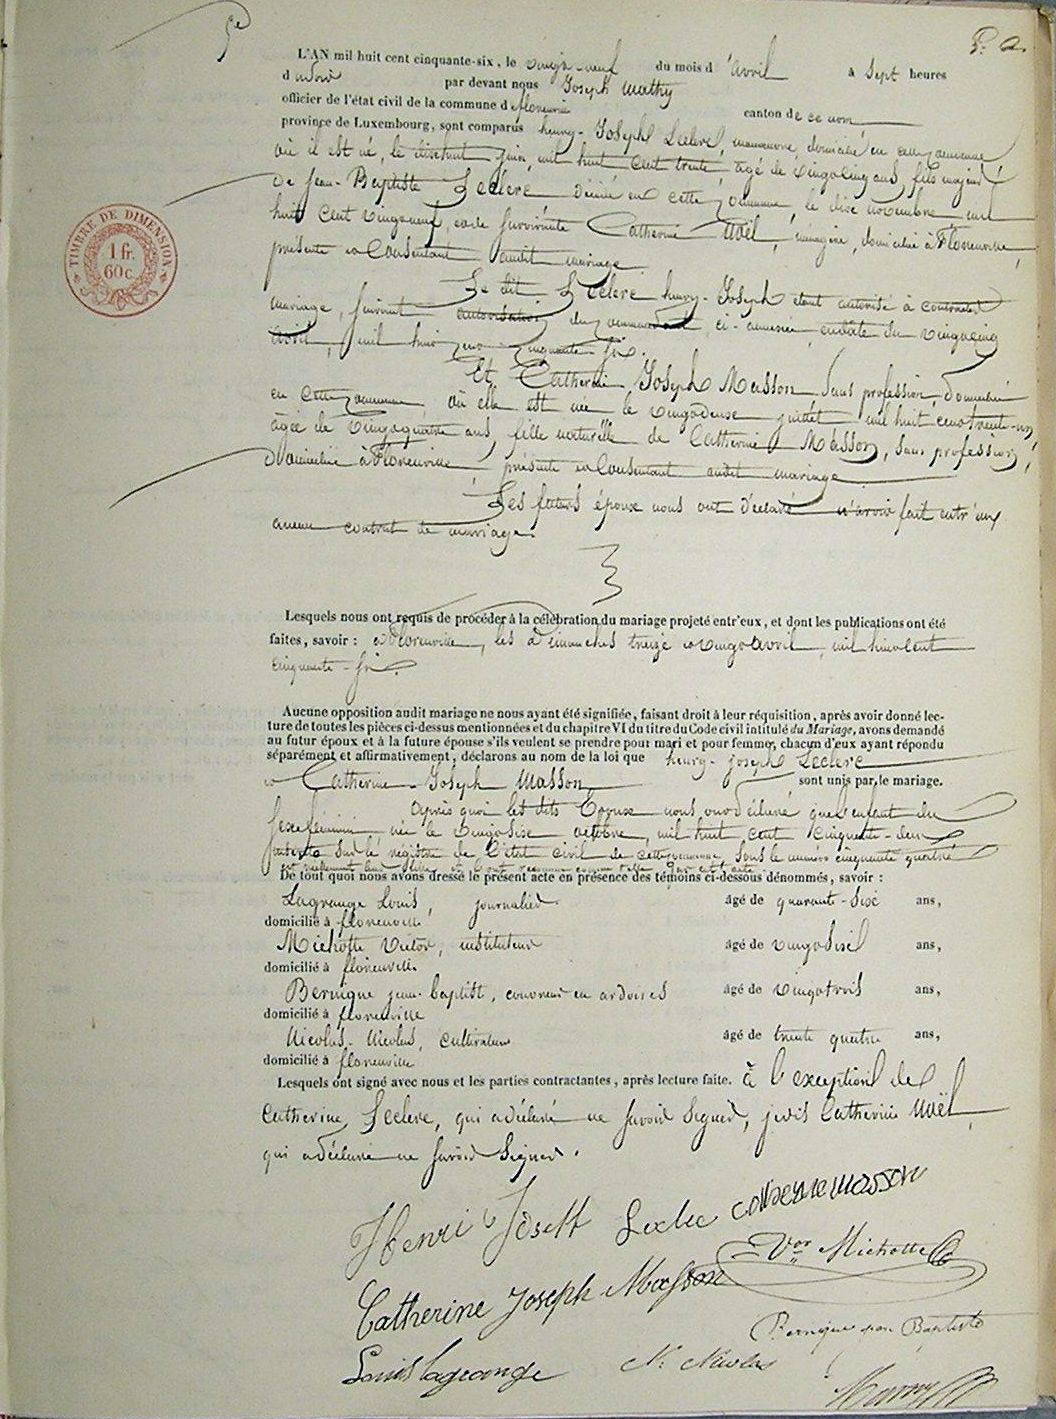 5e
P. A.
L'AN mil huit cent cinquante-six, le vingt-neuf du mois d'avril à sept heures
du soir par devant nous Joseph Mathy
officier de l'état civil de la commune de florenville canton de ce nom
province de Luxembourg, sont comparus henry-Joseph Leclere, manoeuvre, domicilié en cette commune
où il est né, le dixhuit juin mil huit cent trente âgé de vingtcinq ans, fils majeur
de Jean-Baptiste Leclere décédé en cette commune, le dix novembre mil
huit cent vingtneuf, et de survivante Catherine Noël, ménagère, domiciliée à Florenville,
présente et Consentant audit mariage
Le dit Leclere henry-Joseph étant autorisé à contracter
mariage, suivant autorisation du commandant, ci-annexée, en date du vingtcinq
avril, mil huit cent cinquante-six.
Et Catherine Joseph Masson sans profession, domiciliée
en cette commune où elle est née le vingtdeux juillet mil huit cent trente-un,
âgée de vingtquatre ans, fille naturelle de Catherine Masson, sans profession,
domiciliée à Florenville, présente et Consentant audit mariage
Les futurs époux nous ont déclaré n'avoir fait entr'eux
aucun contrat de mariage.
Lesquels nous ont requis de procéder à la célébration du mariage projeté entr'eux, et dont les publications ont été
faites, savoir : à Florenville, les dimanches treize et vingt avril, mil huit cent
cinquante-six.
Aucune opposition audit mariage ne nous ayant été signifiée, faisant droit à leur réquisition, après avoir donné lec-
ture de toutes les pièces ci-dessus mentionnées et du chapitre VI du titre du Code civil intitulé du Mariage, avons demandé
au futur époux et à la future épouse s'ils veulent se prendre pour mari et pour femme, chacun d'eux ayant répondu
séparément et affirmativement, déclarons au nom de la loi que henry-joseph Leclere
et Catherine-Joseph Masson sont unis par le mariage.
après quoi les dits Epoux nous ont déclaré que l'enfant du
sexe féminin née le vingtsix octobre mil huit cent cinquante-deux
inscrite sur le registre de l'état civil de cette commune sous le numéro cinquante quatre
De tout quoi nous avons dressé le présent acte en présence des témoins ci-dessous dénommés, savoir :
Lagrange Louis, journalier âgé de quarante-six ans,
domicilié à florenville
Michotte Victor, instituteur âgé de vingtsix ans,
domicilié à florenville
Bernique jean-baptist, couvreur en ardoises âgé de vingttrois ans,
domicilié à florenville
Nicolas-Nicolas, cultivateur âgé de trente quatre ans,
domicilié à florenville
Lesquels ont signé avec nous et les parties contractantes, après lecture faite. à l'exception de
Catherine Leclere, qui a déclaré ne savoir signer, Catherine Noël,
qui a déclaré ne savoir signer.
Henri Joseph Leclere
Catherine masson
Vor Michotte
Catherine Joseph Masson
Bernique jean Baptiste
Louis lagrange
N. Nicolas
TIMBRE DE DIMENSION
1 fr.
60 c.